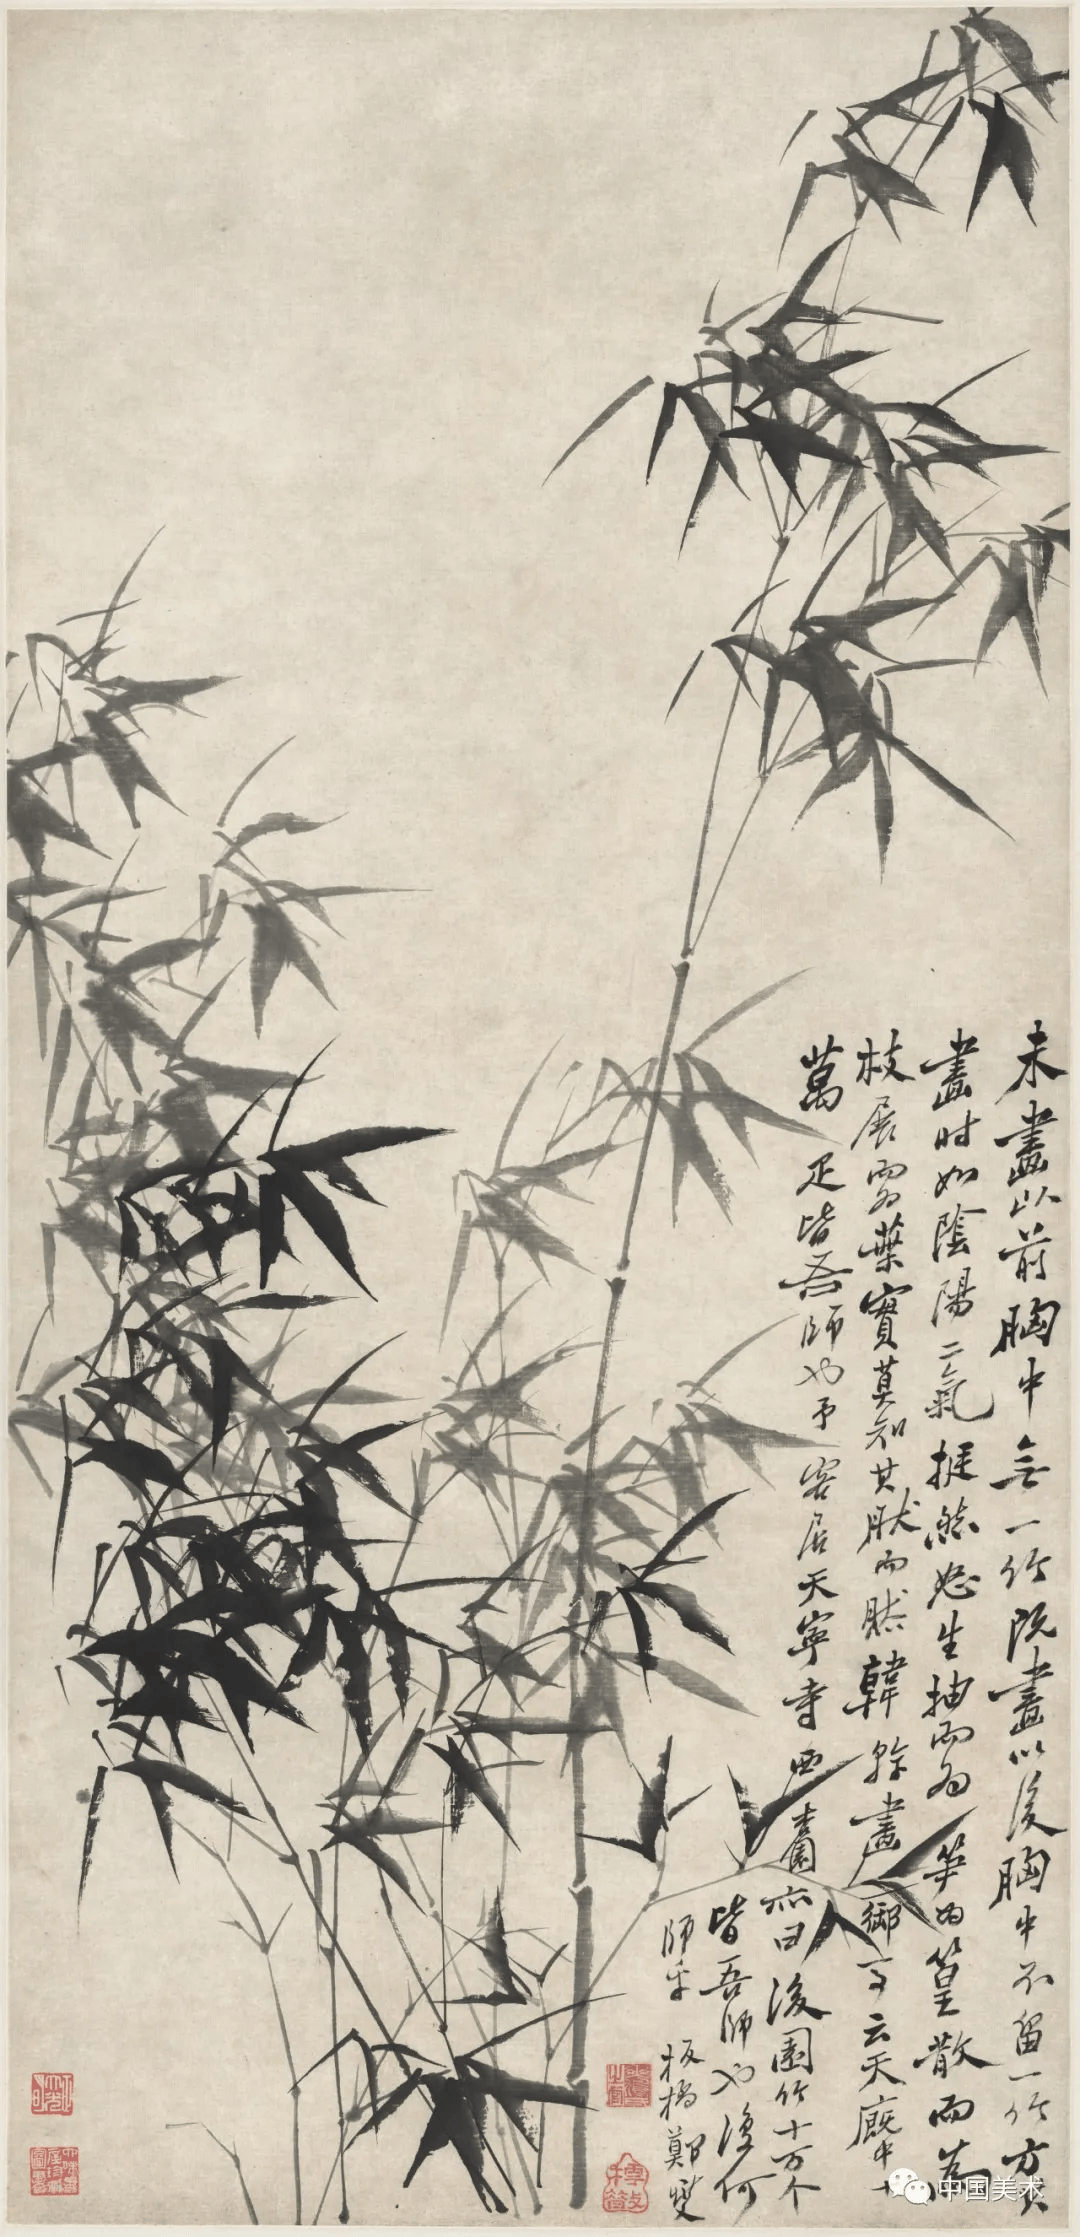 未畫以前胸中無一竹既畫以後胸中不留一竹方其
畫時如陰陽二氣挺然怒生抽而為筍為篁散而為
枝展而為葉實莫知其然而然韓幹畫御馬云天廄中十
萬疋皆吾師也予客居天寧寺西杏園亦曰後園竹十万个
皆吾師也復何
師乎 板橋鄭燮
中国美术